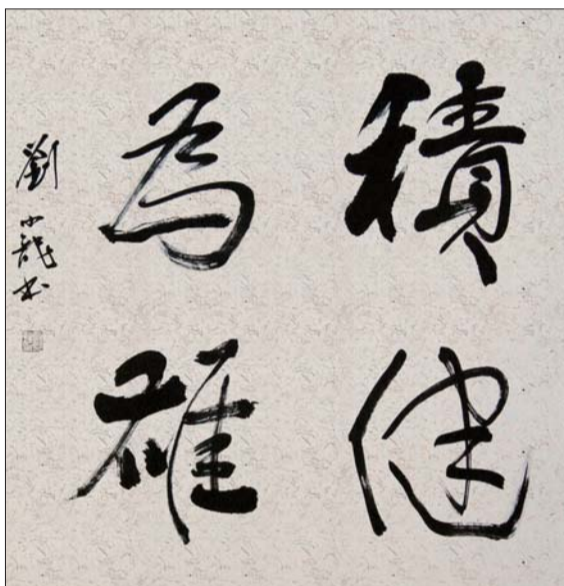 積健
為雄
劉小龍书